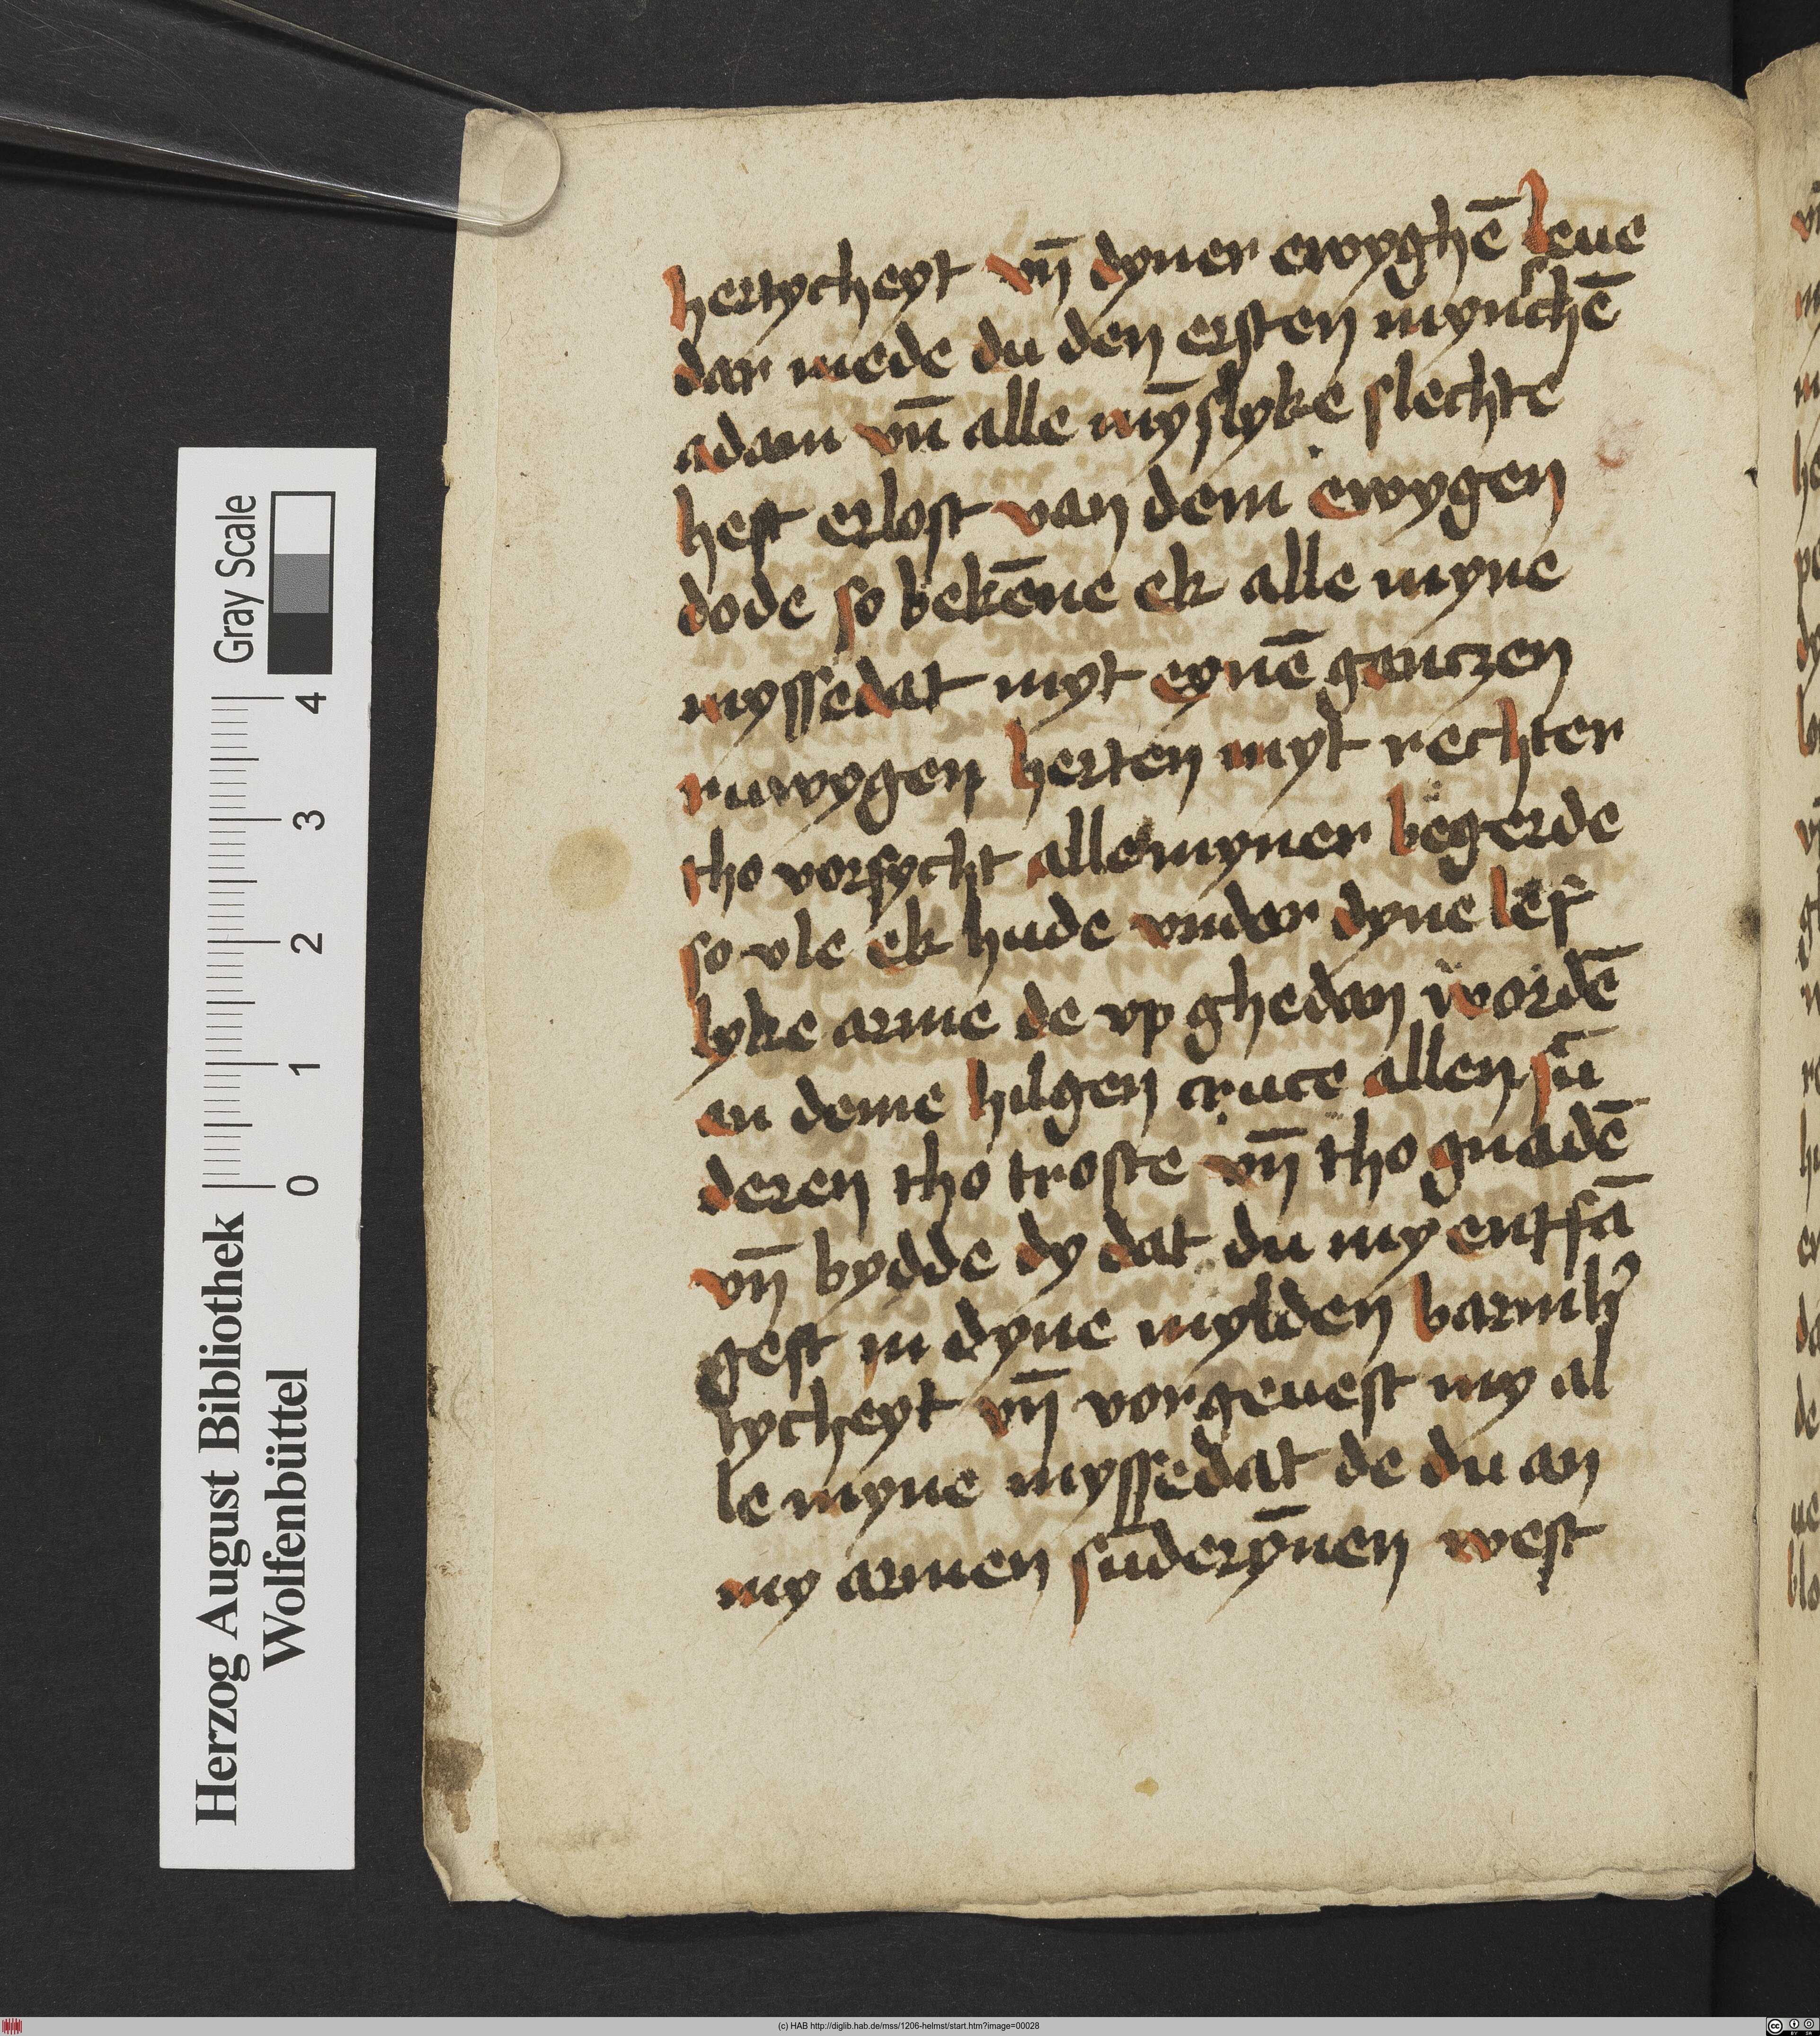 hertycheyt vn̄ dyner ewyghē leue
dar mede du den ersten mynschē
adam vn̄ alle mȳslyke slechte
hest erlost van dem ewygen
dode so bekēne ek alle myne
myssedat myt eynē ganczen
ruwygen herten myt rechter
tho vorsycht alle myner begerde
so vle ek hude vnder dyne lef
lyke arme de vp ghedan wordē
an deme hilgen cruce allen sū
deren tho troste vn̄ tho gnadē
vn̄ bydde dy dat du my entfā
gest in dyne mylden barmh'
tycheyt vn̄ vorgeuest my al
le myne myssedat de du an
my armen sūderȳnen west
Gray Scale
0 1 2 3 4
Herzog August Bibliothek
Wolfenbüttel
(c) HAB http://diglib.hab.de/mss/1206-helmst/start.htm?image=00028